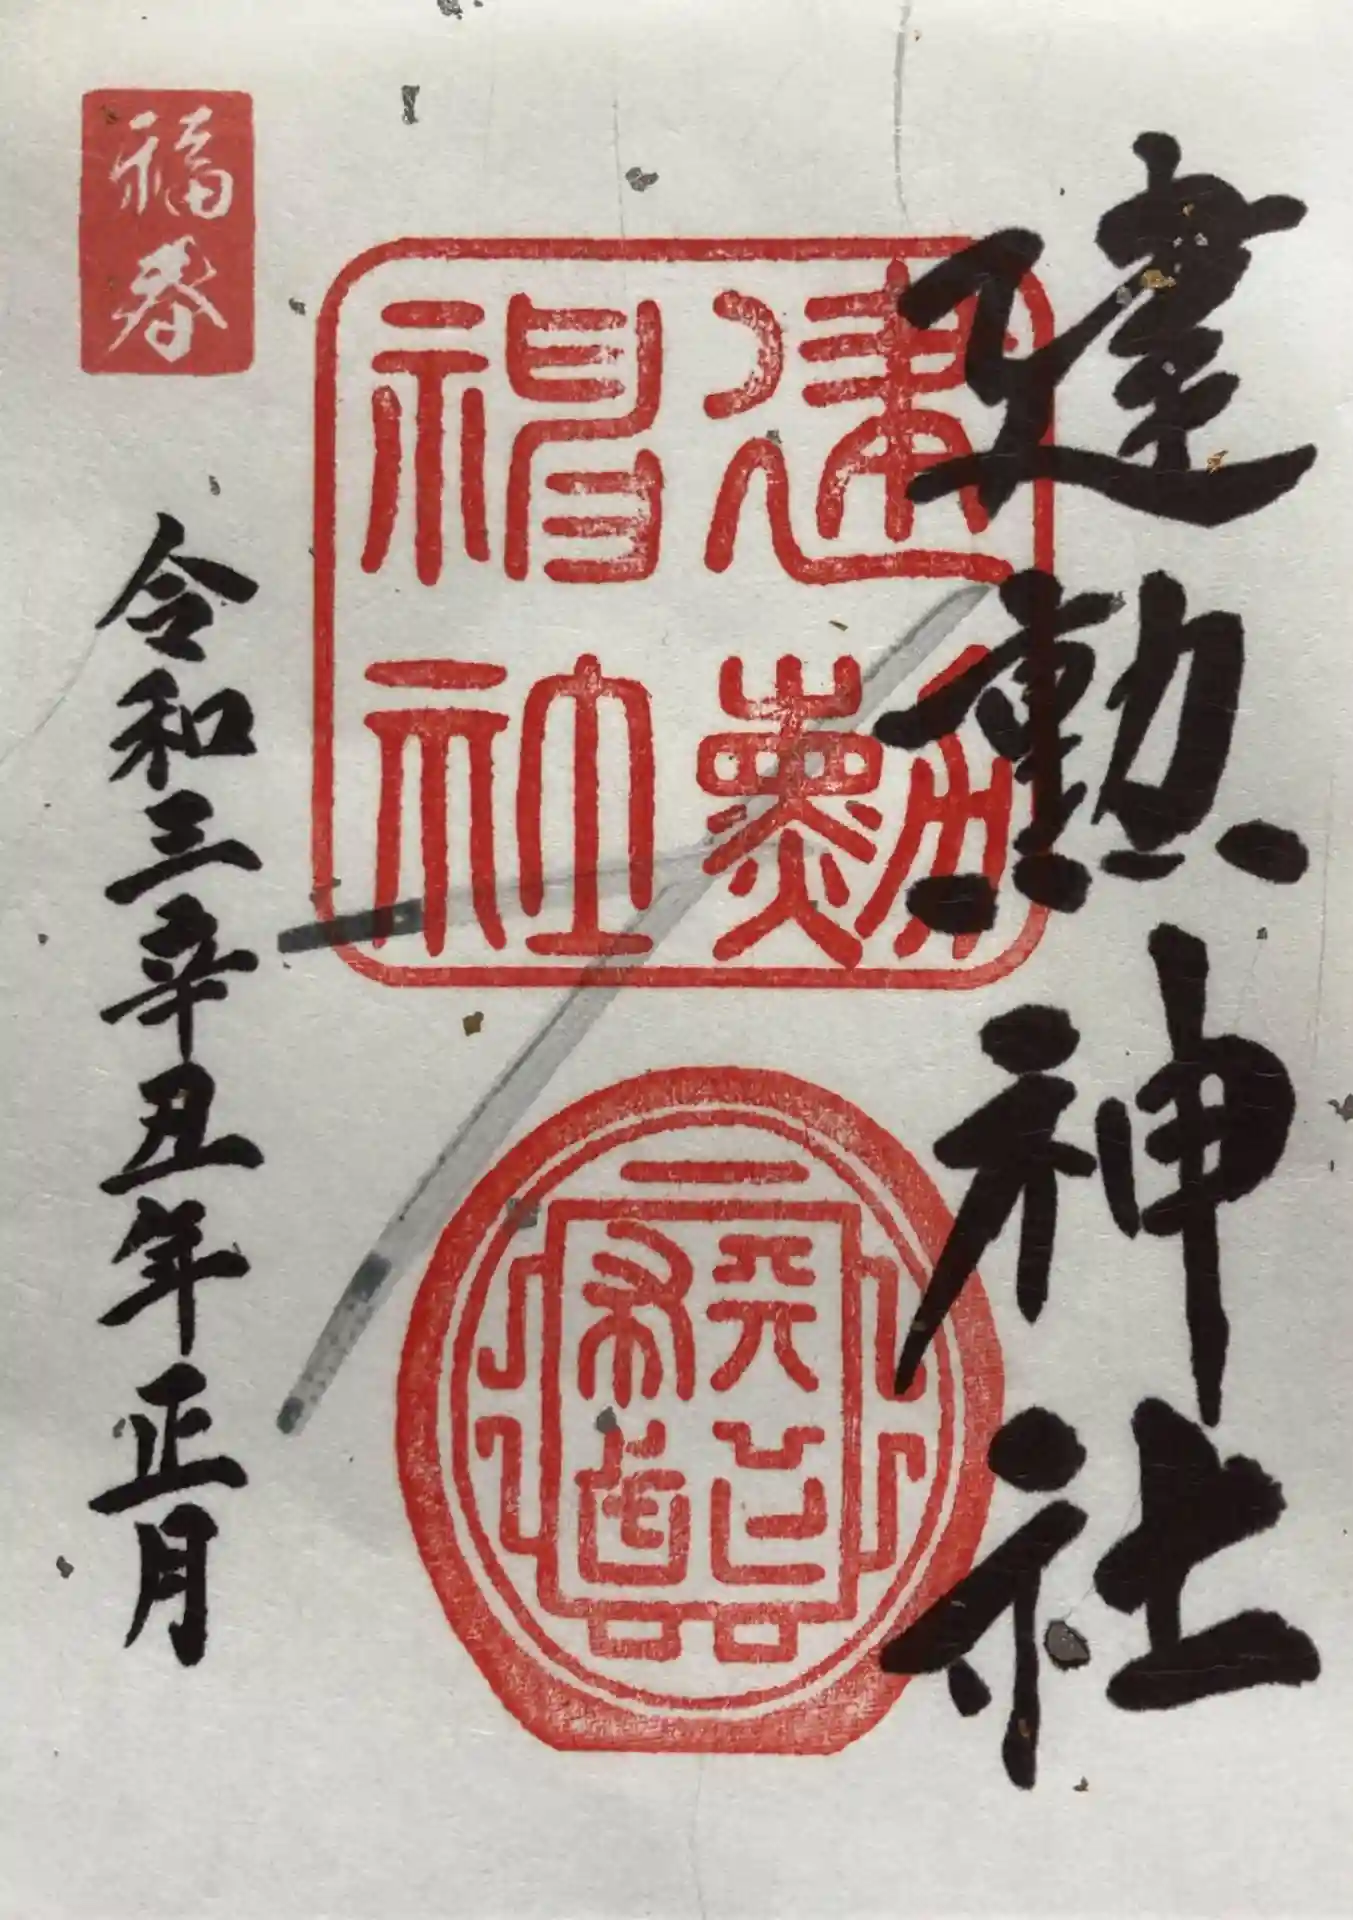 建勲神社
建勲
神社
天下布武
福春
令和三辛丑年正月